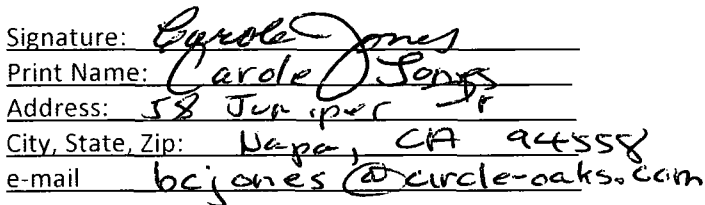 Signature: Carole Jones
Print Name: Carole Jones
Address: 58 Juniper Dr
City, State, Zip: Napa, CA 94558
e-mail bcjones@circle-oaks.com